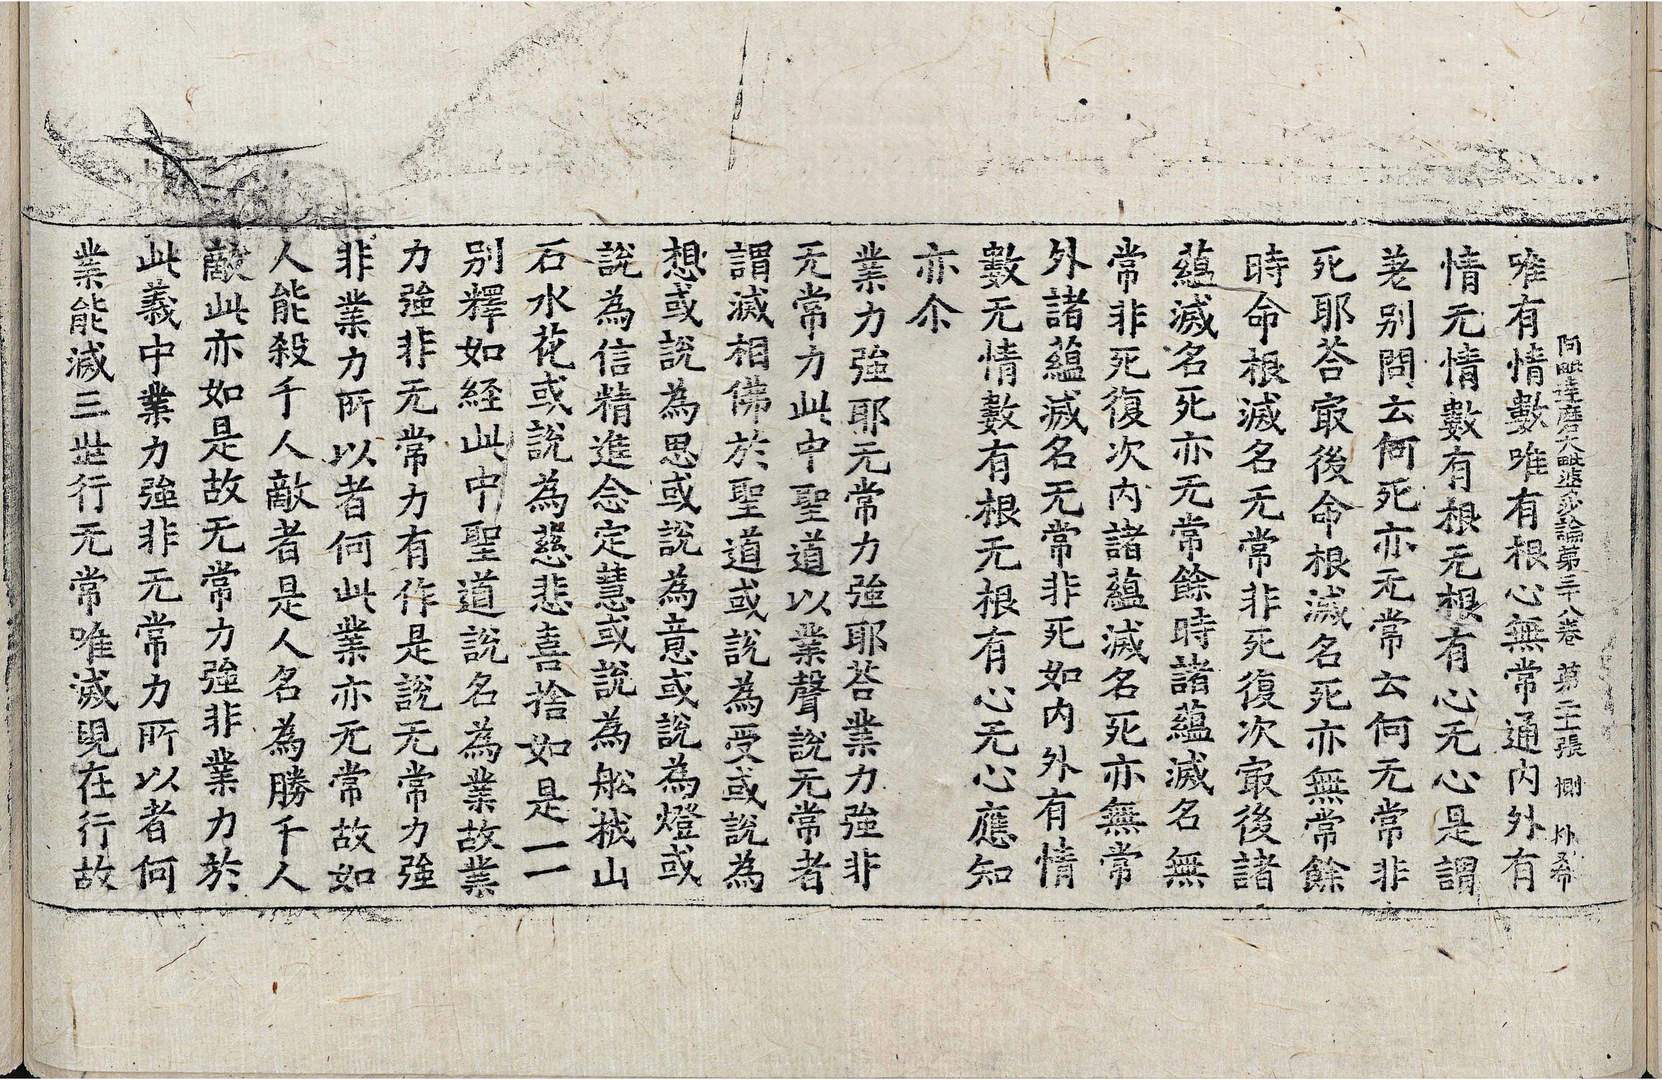 阿毗達磨大毗婆沙論第三十八卷 第二十張 惻
唯有情數唯有根心無常通內外有
情无情數有根无根有心无心是謂
差别問云何死亦无常云何无常非
死耶荅㝡後命根滅名死亦無常餘
時命根滅名无常非死復次㝡後諸
蘊滅名死亦无常餘時諸蘊滅名無
常非死復次內諸蘊滅名死亦無常
外諸蘊滅名无常非死如內外有情
數无情數有根无根有心无心應知
亦尒
業力強耶无常力強耶荅業力強非
无常力此中聖道以業聲說无常者
謂滅相佛於聖道或說為受或說為
想或說為思或說為意或說為燈或
說為信精進念定慧或說為舩栰山
石水花或說為慈悲喜捨如是一一
别釋如経此中聖道說名為業故業
力強非无常力有作是說无常力強
非業力所以者何此業亦无常故如
人能殺千人敵者是人名為勝千人
敵此亦如是故无常力強非業力於
此義中業力強非无常力所以者何
業能滅三世行无常唯滅現在行故